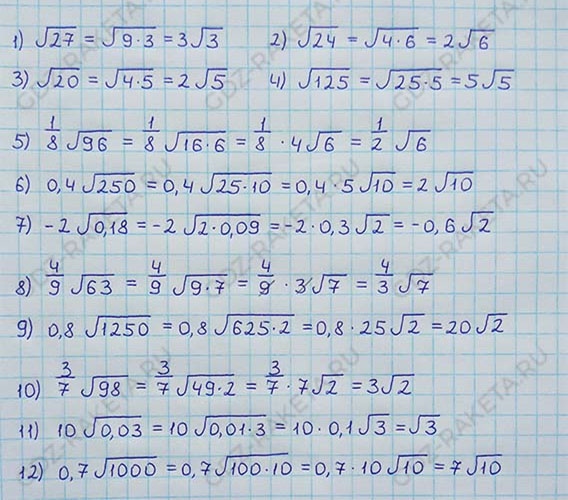 1) √27 = √9·3 = 3√3 2) √24 = √4·6 = 2√6
3) √20 = √4·5 = 2√5 4) √125 = √25·5 = 5√5
5) 1/8 √96 = 1/8 √16·6 = 1/8 · 4√6 = 1/2 √6
6) 0,4√250 = 0,4√25·10 = 0,4·5√10 = 2√10
7) -2√0,18 = -2√2·0,09 = -2·0,3√2 = -0,6√2
8) 4/9 √63 = 4/9 √9·7 = 4/9 · 3√7 = 4/3 √7
9) 0,8√1250 = 0,8√625·2 = 0,8·25√2 = 20√2
10) 3/7 √98 = 3/7 √49·2 = 3/7 · 7√2 = 3√2
11) 10√0,03 = 10√0,01·3 = 10·0,1√3 = √3
12) 0,7√1000 = 0,7√100·10 = 0,7·10√10 = 7√10
GDZ-RAKETA.RU